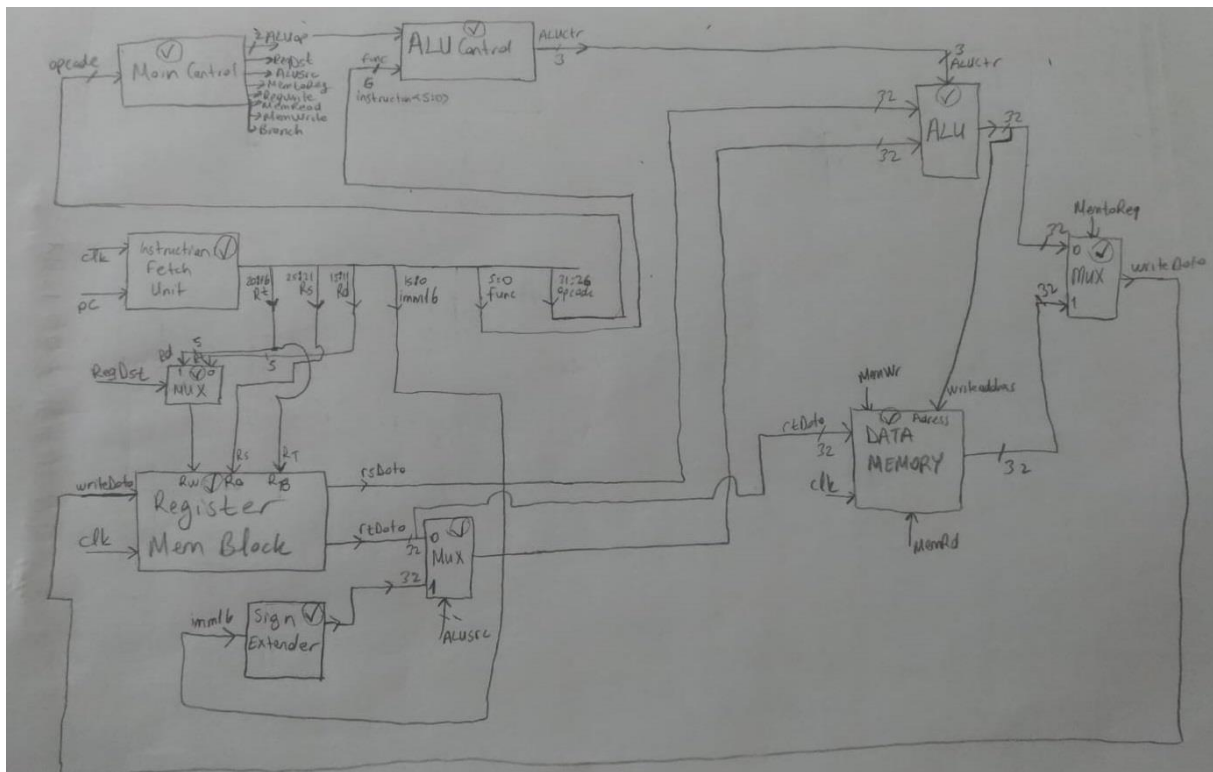 opcode
Main Control
2
ALUop
RegDst
ALUsrc
MemtoReg
RegWrite
MemRead
MemWrite
Branch
func
6
instruction<5:0>
ALU Control
ALUctr
3
3
ALUctr
32
32
ALU
32
clk
PC
Instruction
Fetch
Unit
20:16
Rt
25:21
Rs
15:11
Rd
15:0
imm16
5:0
func
31:26
opcode
MemtoReg
32
0
MUX
32
1
writeData
Rd
5
5
RegDst
1
0
MUX
Rs
RT
writeData
clk
RW
RA
RB
Register
Mem Block
rsData
rtData
32
0
Mux
32
1
ALUsrc
imm16
Sign
Extender
MemWr
writeaddress
rtData
32
Adress
DATA
MEMORY
clk
32
MemRd